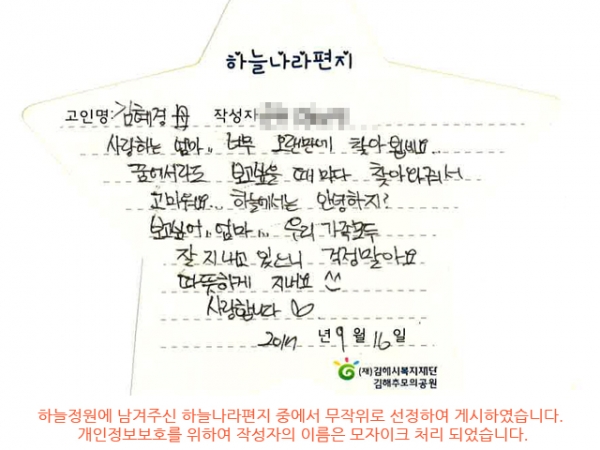 하늘나라편지
고인명: 김혜경 母 작성자
사랑하는 엄마.. 너무 오랜만에 찾아왔네요..
꿈에서라도 보고싶을 때마다 찾아와줘서
고마워요.. 하늘에서는 안녕하지?
보고싶어.. 엄마.. 우리 가족모두
잘 지내고 있으니 걱정말아요
따뜻하게 지내요 ^^
사랑합니다 ♡
2017 년 9 월 16 일
(재)김해시복지재단
김해추모의공원
하늘정원에 남겨주신 하늘나라편지 중에서 무작위로 선정하여 게시하였습니다.
개인정보보호를 위하여 작성자의 이름은 모자이크 처리 되었습니다.